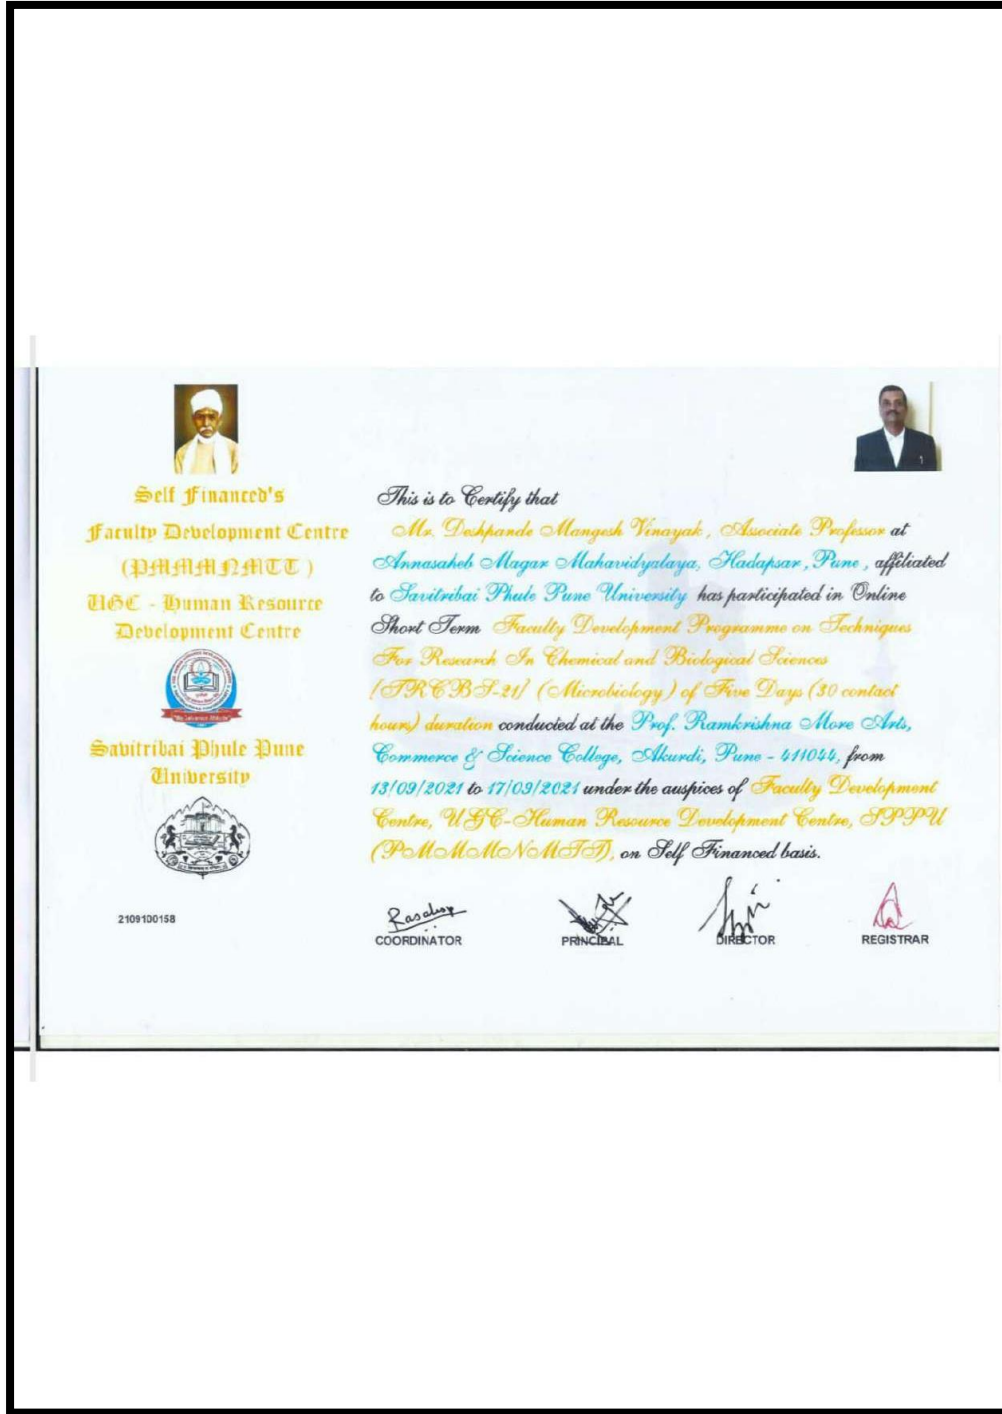 Self Financed's
Faculty Development Centre
(PMMMNMTT)
UGC - Human Resource
Development Centre
Savitribai Phule Pune
University
2109100158
This is to Certify that
Mr. Deshpande Mangesh Vinayak, Associate Professor at
Annasaheb Magar Mahavidyalaya, Hadapsar, Pune, affiliated
to Savitribai Phule Pune University has participated in Online
Short Term Faculty Development Programme on Techniques
For Research In Chemical and Biological Sciences
[TRCBS-21] (Microbiology) of Five Days (30 contact
hours) duration conducted at the Prof. Ramkrishna More Arts,
Commerce & Science College, Akurdi, Pune - 411044, from
13/09/2021 to 17/09/2021 under the auspices of Faculty Development
Centre, UGC-Human Resource Development Centre, SPPU
(PMMMNMTT), on Self Financed basis.
COORDINATOR
PRINCIPAL
DIRECTOR
REGISTRAR